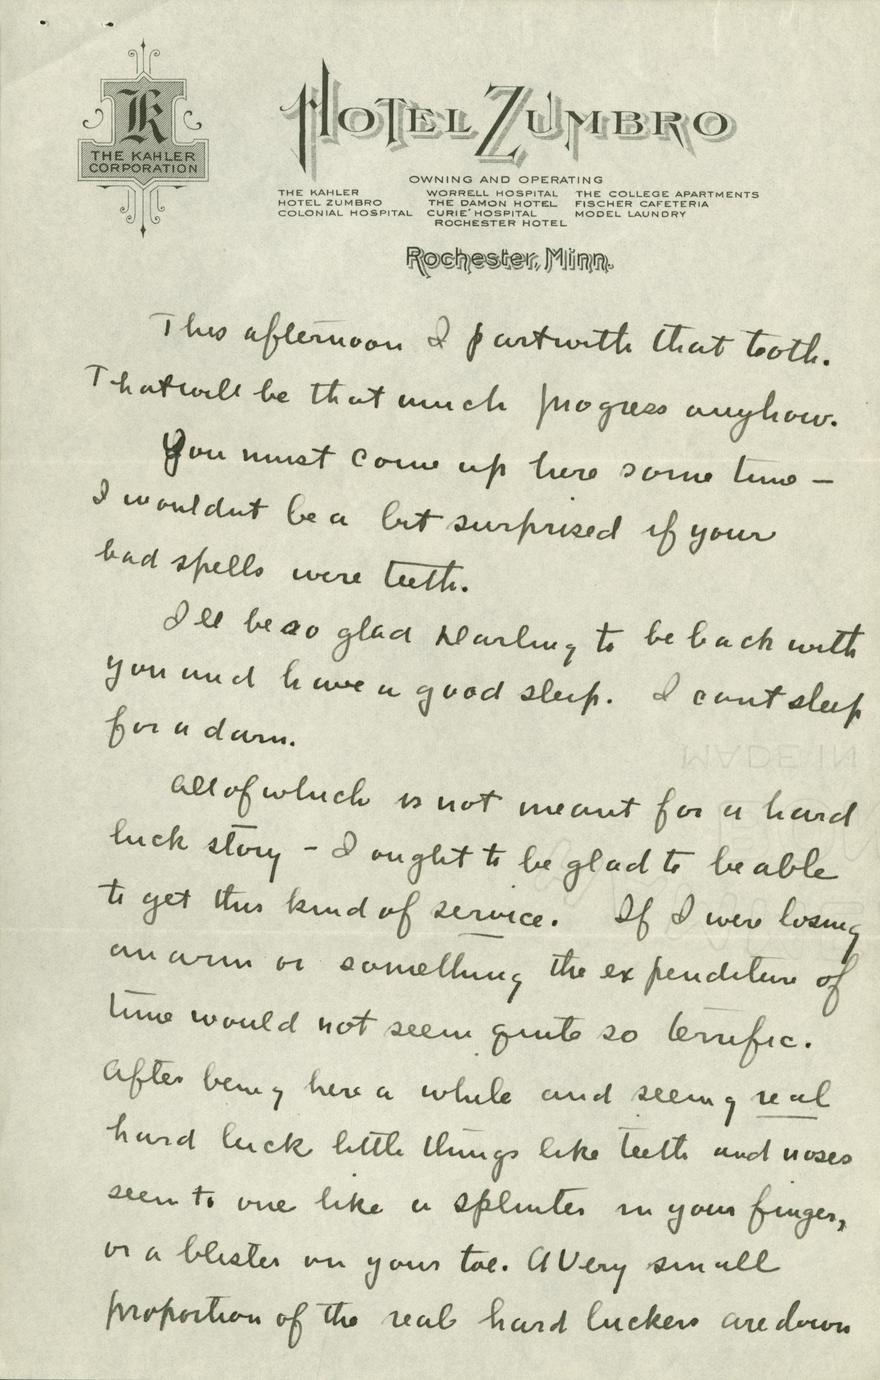 K
THE KAHLER
CORPORATION
HOTEL ZUMBRO
OWNING AND OPERATING
THE KAHLER WORRELL HOSPITAL THE COLLEGE APARTMENTS
HOTEL ZUMBRO THE DAMON HOTEL FISCHER CAFETERIA
COLONIAL HOSPITAL CURIE HOSPITAL MODEL LAUNDRY
ROCHESTER HOTEL
Rochester, Minn.
This afternoon I part with that tooth.
That will be that much progress anyhow.
You must come up here some time –
I wouldnt be a bit surprised if your
bad spells were teeth.
I'll be so glad Darling to be back with
you and have a good sleep. I cant sleep
for a darn.
All of which is not meant for a hard
luck story – I ought to be glad to be able
to get this kind of service. If I were losing
an arm or something the expenditure of
time would not seem quite so terrific.
After being here a while and seeing real
hard luck little things like teeth and noses
seem to one like a splinter in your finger,
or a blister on your toe. A very small
proportion of the real hard luckers are down
MADE IN